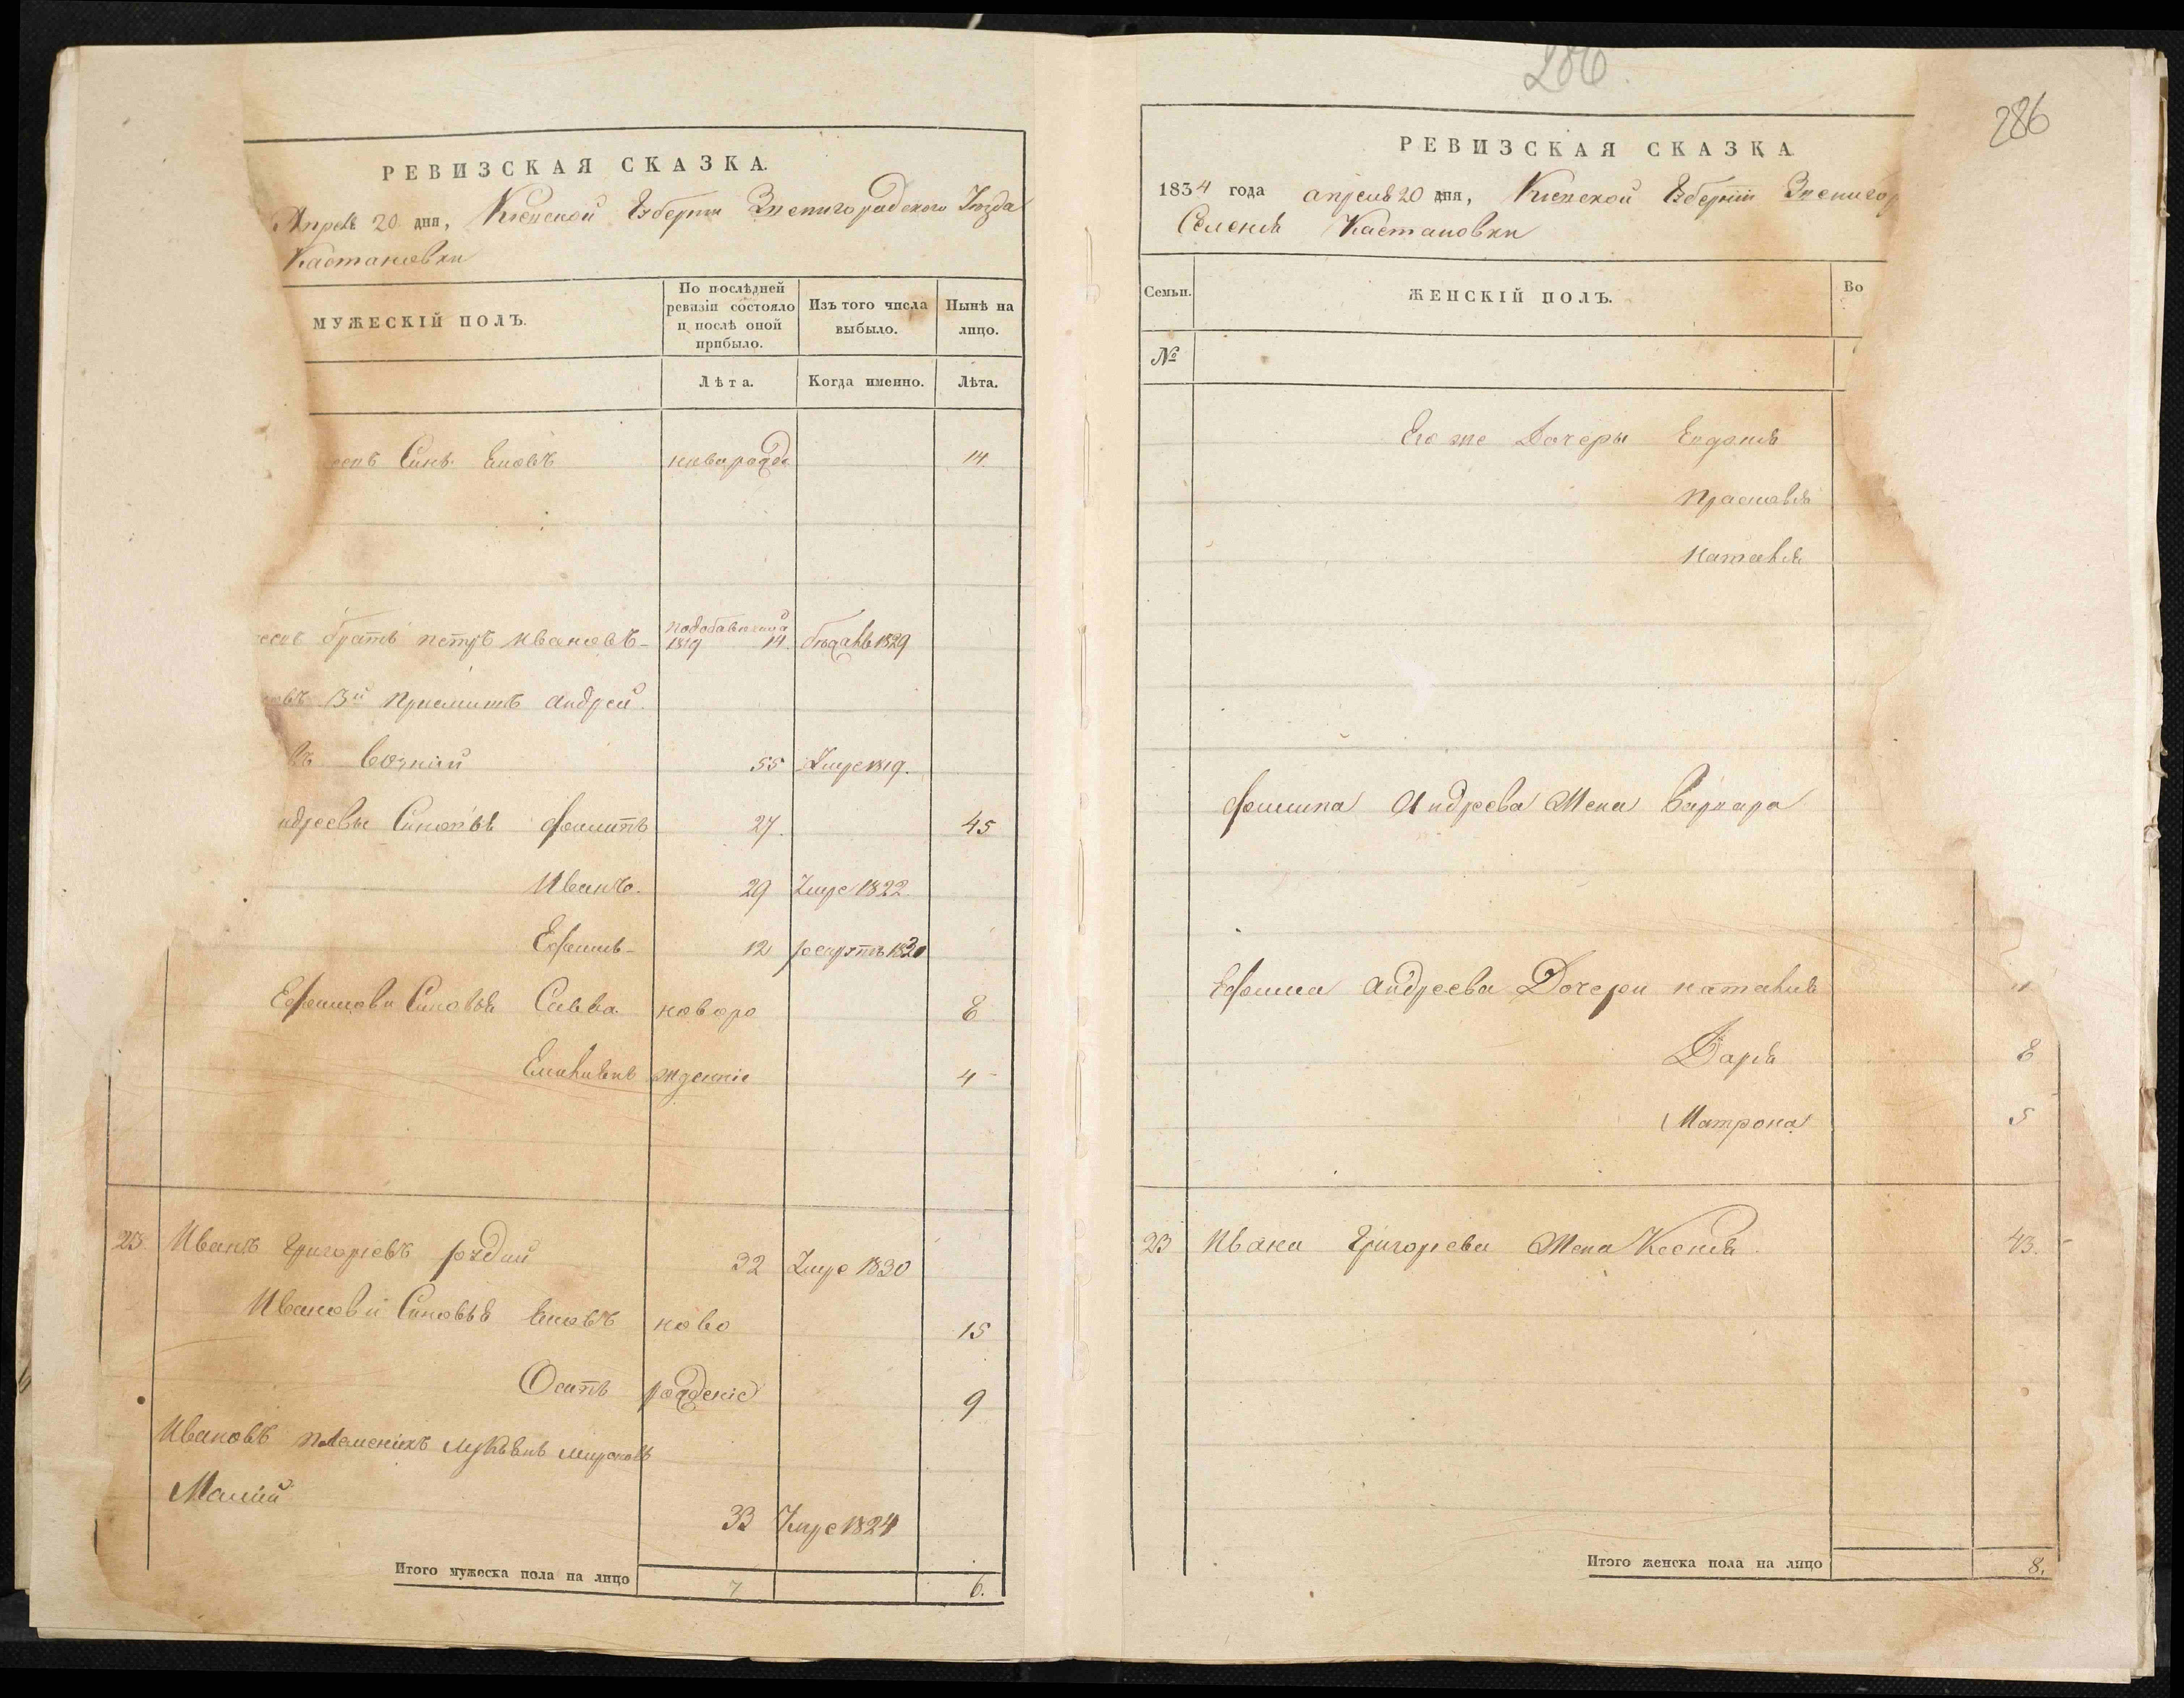 РЕВИЗСКАЯ СКАЗКА.
Апреля 20 дня, Киевской Губерни Звенигородского Уезда
Кастановки
МУЖЕСКІЙ ПОЛЪ.
По послѣдней ревизіи состояло и послѣ оной прибыло.
Изъ того числа выбыло.
Нынѣ на лицо.
Лѣта.
Когда именно.
Лѣта.
Синъ Яковъ новорожде 14.
братъ петръ Ивановъ 1819 14. 1829
3й Приемишъ андрей
55 Умре 1819.
ндреевы Синовья фомитъ 27. 45
Иванъ. 29 Умре 1822
Ефимъ 12 рекрутъ 1830
Ефимови Синовья Савва новоро 8
Емельянъ жденніе 4
23. Иванъ Григориевъ рудий 32 Умре 1830
Иванови Синовья Яковъ ново 15
Осипъ рожденіе 9
Ивановъ племеникъ Лукьянъ мироновъ
Малий
33 Умре 1824
Итого мужеска пола на лицо 7 6.
286.
286
РЕВИЗСКАЯ СКАЗКА
1834 года апреля 20 дня, Киевской Губерніи Звенигор
Селенія Кастановки
Семьи.
ЖЕНСКІЙ ПОЛЪ.
Во
№
Его же Дочеры Евдокія
Прасковія
Наталія
Андреева Жена Варвара
Ефима андреева Дочери наталия
Дарія 8
Матрона 5
23 Ивана Григориева Жена Ксения 43.
Итого женска пола на лицо 8.